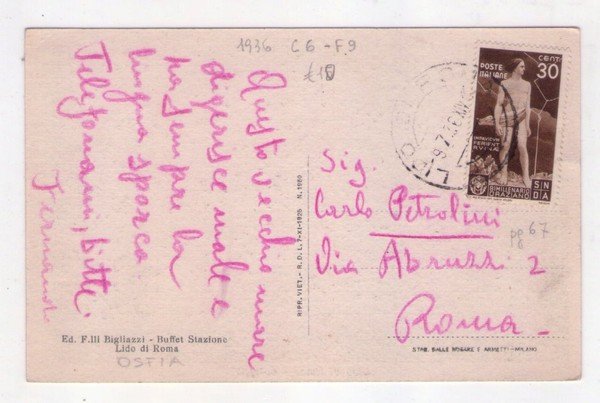 1936 C6-F9
€10
Questo vecchio mare
digerisce male e
ha sempre la
lingua sporca
Telefonami, bitte.
POSTE
ITALIANE
CENT.
30
IMPAVIDUM
FERIENT
RVINAE
BIMILLENARIO
ORAZIANO
S N
D A
LIDO
Sig.
Carlo Petrolini
Via Abruzzi 2
Roma
pg 67
RIPR. VIET. - R. D. L. 7-XI-1925 N. 1950
Ed. F.lli Bigliazzi - Buffet Stazione
Lido di Roma
OSTIA
STAB. DALLE NOGARE E ARMETTI - MILANO